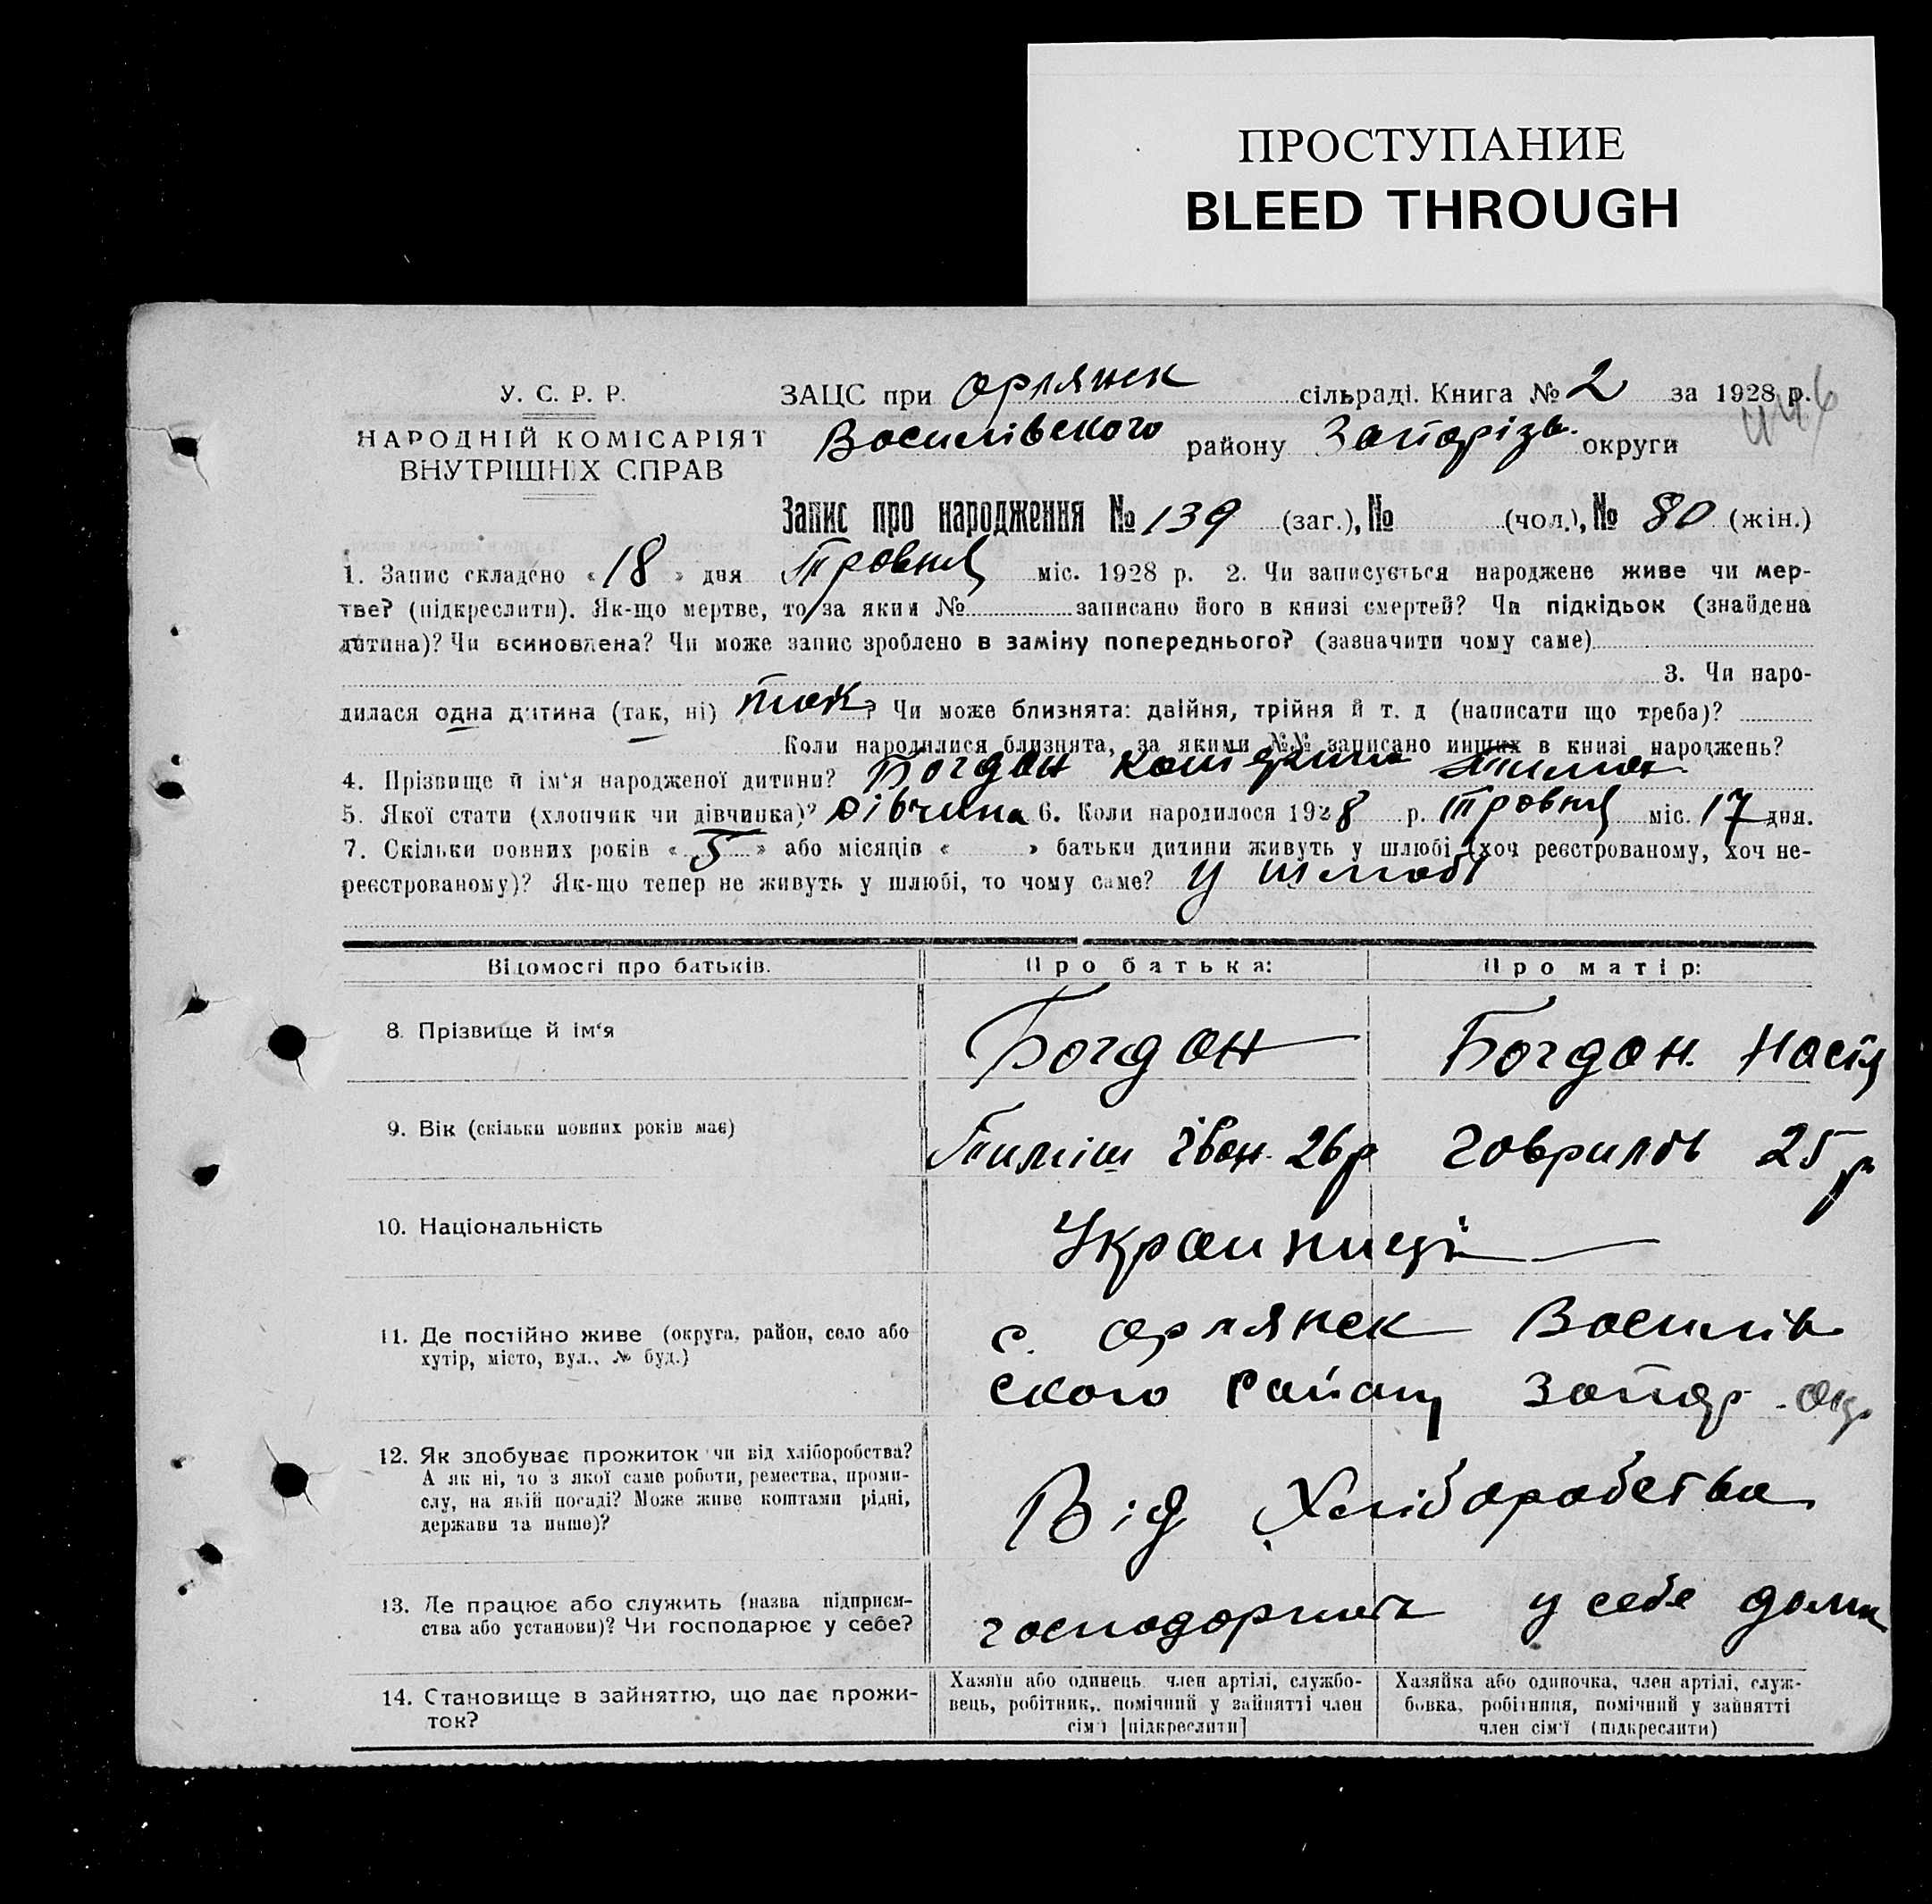 ПРОСТУПАНИЕ
BLEED THROUGH
У. С. Р. Р.
НАРОДНІЙ КОМІСАРІЯТ
ВНУТРІШНІХ СПРАВ
ЗАЦС при Орлянск сільраді. Книга № 2 за 1928 р.
Василівского району Запоріз. округи
Запис про народження № 139 (заг.), № (чол.), № 80 (жін.)
1. Запис складено « 18 » дня Травня міс. 1928 р. 2. Чи записується народжене живе чи мер-
тве? (підкреслити). Як-що мертве, то за яким № записано його в книзі смертей? Чи підкідьок (знайдена
дитина)? Чи всиновлена? Чи може запис зроблено в заміну попереднього? (зазначити чому саме)
3. Чи наро-
дилася одна дитина (так, ні) так? Чи може близнята: двійня, трійня й т. д (написати що треба)?
Коли народилися близнята, за якими №№ записано инших в книзі народжень?
4. Прізвище й ім‘я народженої дитини? Богдан
5. Якої стати (хлопчик чи дівчинка)? дівчина 6. Коли народилося 1928 р. Травня міс. 17 дня.
7. Скільки повних років « 5 » або місяців « » батьки дитини живуть у шлюбі (хоч реєстрованому, хоч не-
реєстрованому)? Як-що тепер не живуть у шлюбі, то чому саме? У шлюбі
Відомості про батьків. Про батька: Про матір:
8. Прізвище й ім‘я Богдан Богдан. Настя
9. Вік (скільки повних років має) Тиміш Іван. 26 р Гаврилов 25 р
10. Національність Украинці
11. Де постійно живе (округа, район, село або
хутір, місто, вул., № буд.)
с. Орлянск Василів
ского району Запор. окр
12. Як здобуває прожиток чи від хліборобства?
А як ні, то з якої саме роботи, ремества, проми-
слу, на якій посаді? Може живе коштами рідні,
держави та инше)?
Від Хліборобства
13. Де працює або служить (назва підприєм-
ства або установи)? Чи господарює у себе?
господорють у себе дома
14. Становище в зайняттю, що дає прожи-
ток?
Хазяїн або одинець, член артілі, службо-
вець, робітник, помічний у зайнятті член
сім‘ї [підкреслити]
Хазяйка або одиночка, член артілі, служ-
бовка, робітниця, помічний у зайнятті
член сім‘ї (підкреслити)